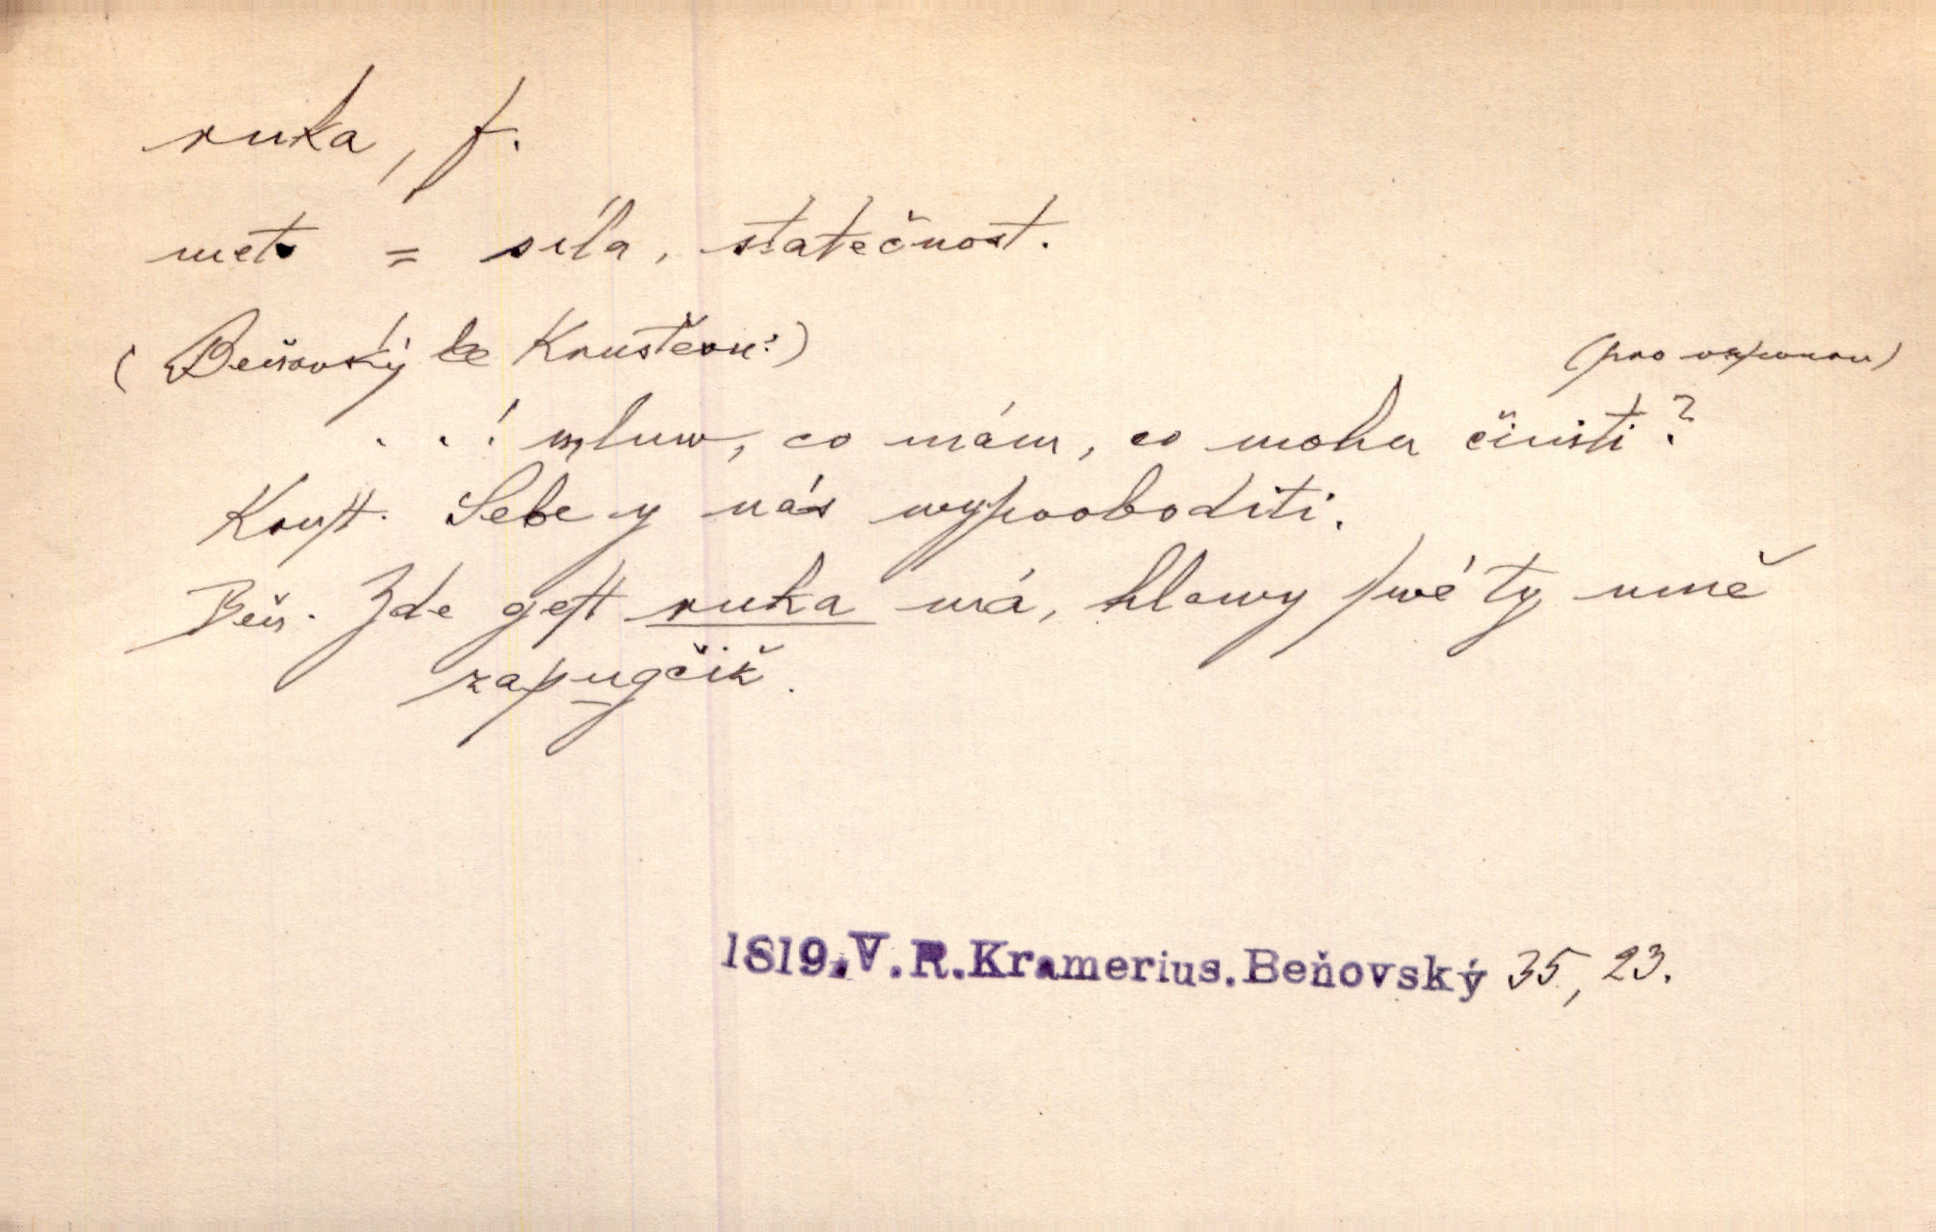 ruka, f.
met. = síla, statečnost.
(Beňovský ke Krustěvu:)
(pro vzpouru)
. . . mluw, co mám, co mohu činiti?
Kruſt. Sebe y nás wyſwoboditi.
Beň. Zde geſt ruka má, hlawy ſwé ty mně
zapugčiž.
1819.V.R.Kramerius.Beňovský 35, 23.